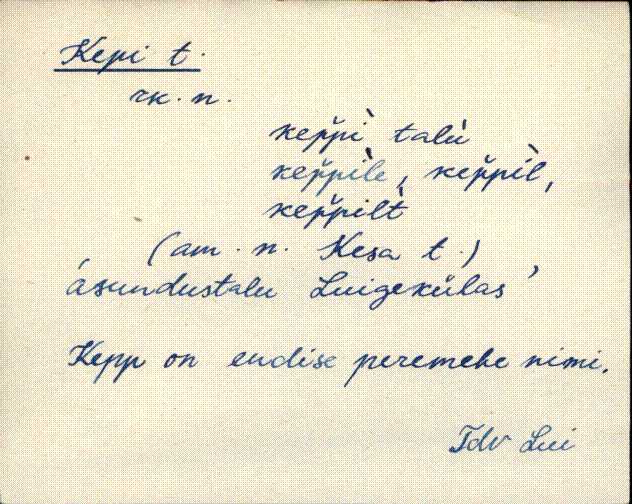 Kepi t.
rk. n.
kep̆pì talù
kep̆pìle, kep̆pìl,
kep̆pìlt
(am. n. Kesa t.)
'asundustalu Luigekülas'
Kepp on endise peremehe nimi.
Tdv Lui